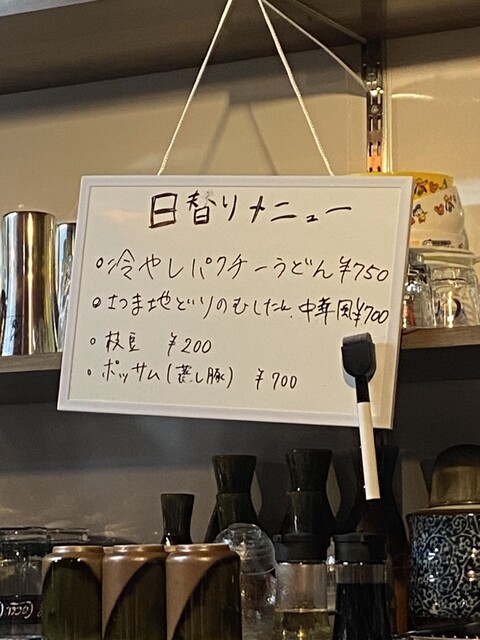 日替りメニュー
・冷やしパクチーうどん ¥750
・さつま地どりのむしたし、中華風 ¥700
・枝豆 ¥200
・ポッサム(蒸し豚) ¥700